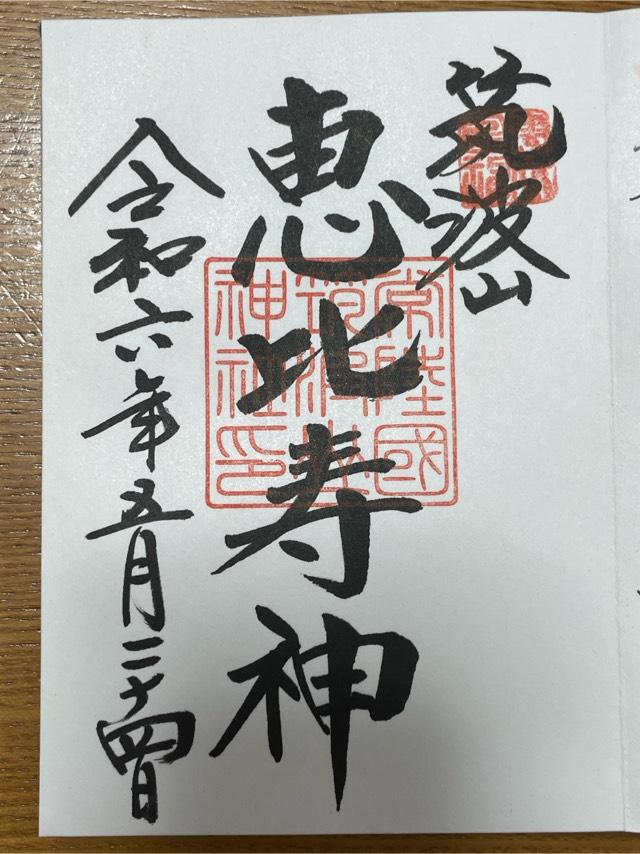 筑波山
恵比寿神
常陸國
筑波山
神社印
令和六年五月二十四日